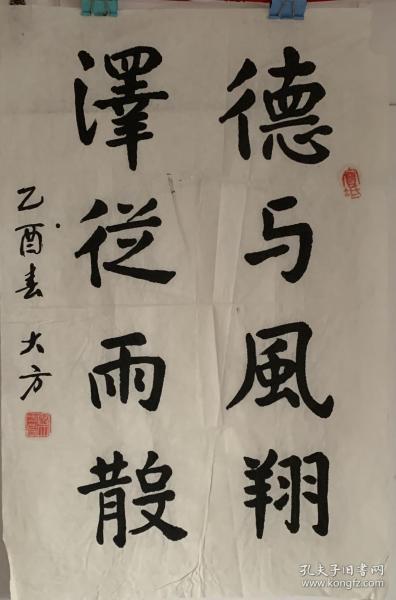 德与風翔
澤従雨散
乙酉春 大方
孔夫子旧书网
www.kongfz.com